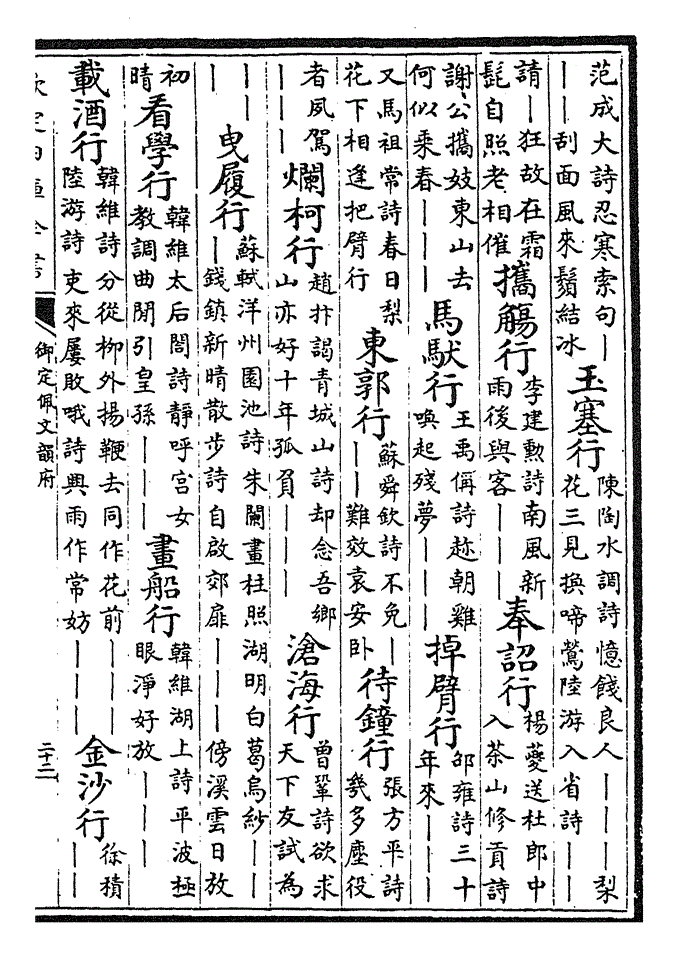 范成大詩忍寒索句｜｜｜刮面風來鬚結冰玉塞行陳陶水調詩憶餞良人｜｜｜梨花三見換啼鶯陸游入省詩｜｜
請｜狂故在霜髭自照老相催攜觴行李建勲詩南風新雨後與客｜｜｜奉詔行楊夔送杜郎中入茶山修貢詩
謝公攜妓東山去何似乘春｜｜｜馬馱行王禹偁詩趂朝雞喚起殘夢｜｜｜掉臂行邵雍詩三十年來｜｜｜
又馬祖常詩春日梨花下相逢把臂行東郭行蘇舜欽詩不免｜｜｜難效袁安卧待鐘行張方平詩幾多塵役
者夙駕｜｜｜爛柯行趙抃謁青城山詩却念吾鄉山亦好十年孤負｜｜｜滄海行曾鞏詩欲求天下友試為
｜｜｜曳履行蘇軾洋州園池詩朱闌畫柱照湖明白葛烏紗｜｜｜錢鎮新晴散步詩自啟郊扉｜｜｜傍溪雲日放
初晴看學行韓維太后閤詩靜呼宮女教調曲閒引皇孫｜｜｜畫船行韓維湖上詩平波極眼淨好放｜｜｜
載酒行韓維詩分從柳外揚鞭去同作花前｜｜｜陸游詩吏來屢敗哦詩興雨作常妨｜｜｜金沙行徐積｜｜
欽定四庫全書
御定佩文韻府
二十二